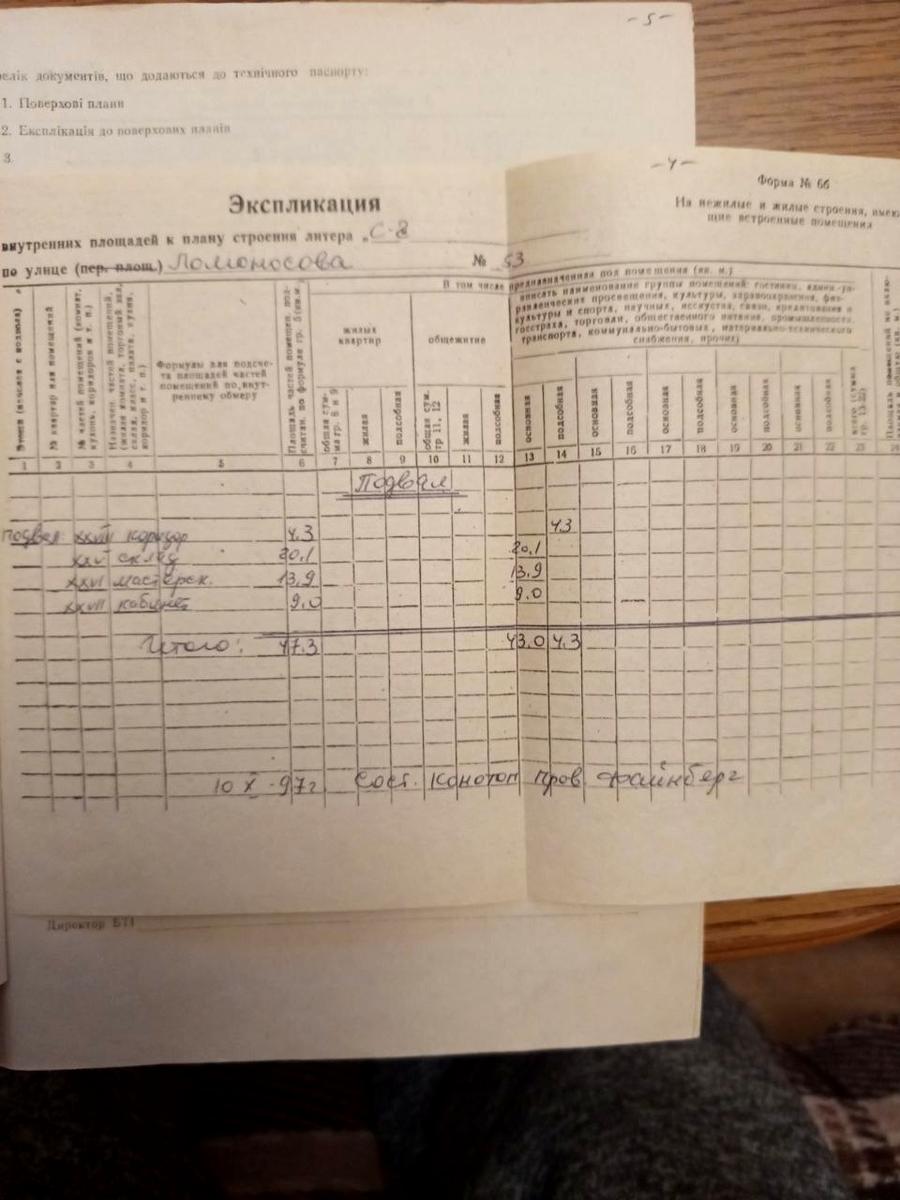 - 5 -
елік документів, що додаються до технічного паспорту:
1. Поверхові плани
2. Експлікація до поверхових планів
3.
- 4 -
Форма № 66
На нежилые и жилые строения, имею
щие встроенные помещения
Экспликация
внутренних площадей к плану строения литера „С-8
по улице (пер. площ.) Ломоносова № 53
В том числе предназначенная под помещения (кв. м.)
вписать наименование группы помещений: гостиниц,
культуры и спорта, научных, искусства, связи, кредитования и
госстраха, торговли, общественного питания, промышленности,
транспорта, коммунально-бытовых, материально-технического
снабжения, прочих)
№ квартир или помещений
№ частей помещений (комнат, кухонь, коридоров и т. п.)
Назначен. частей помещений, (жилая комната, торговый зал, склад, класс, палата, кухня, коридор и т. п.)
Формулы для подсче-
та площадей частей
помещений по внут-
реннему обмеру
Площадь частей помещен. под-
считан. по формуле гр. 5 (кв.м.)
жилых
квартир
общежитие
общая сум-
ма гр. 8 и 9
жилая
подсобная
общая сум.
гр 11, 12
жилая
подсобная
основная
подсобная
основная
подсобная
основная
подсобная
основная
подсобная
основная
подсобная
всего (сумма
гр. 13-22)
1 2 3 4 5 6 7 8 9 10 11 12 13 14 15 16 17 18 19 20 21 22 23 24
Подвал
подвал XXVIII коридор 4.3 4.3
XXV склад 20,1 20,1
XXVI мастерск. 13,9 13,9
XXVII кабинет 9.0 9.0
Итого: 47.3 43.0 4.3
10 X -97г Сост. Конотоп пров. Файнберг
Директор БТІ